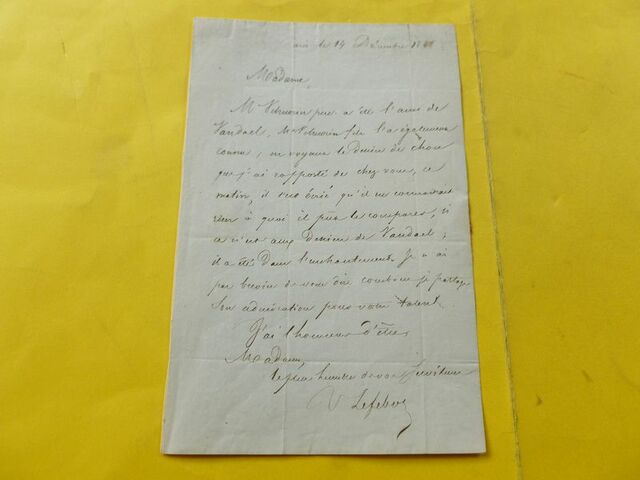 le 19 Décembre
Madame,
Mr Vilmorin père a été l'ami de
Vandael, Mr Vilmorin fils l'a également
connu, en voyant le dessin de chou
que j'ai rapporté de chez vous, ce
matin, il s'est écrié qu'il ne connaissait
rien à quoi il pût le comparer, si
ce n'est aux dessins de Vandael;
il a été dans l'enchantement. Je n'ai
pas besoin de vous dire combien je partage
son admiration pour votre talent.
J'ai l'honneur d'être,
Madame,
le plus humble de vos serviteurs
V Lefebvre